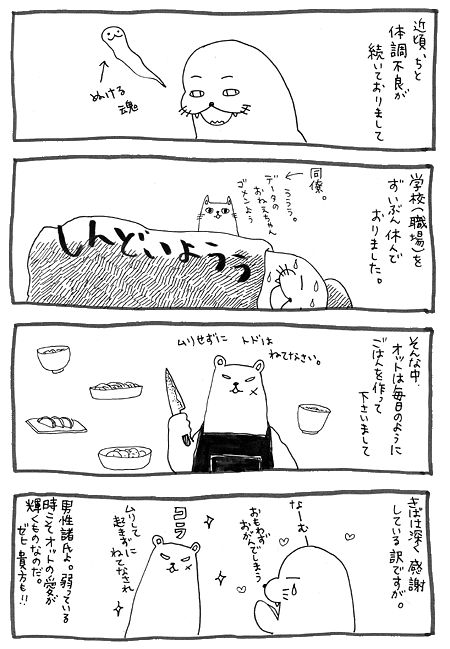 近頃、ちと
体調不良が
続いておりまして
ぬける
魂
学校(職場)を
ずいぶん休んで
おりました。
同僚。
ううう。
データの
おねえちゃん
ゴメンよう
しんどいようぅ
そんな中、
オットは毎日のように
ごはんを作って
下さいまして
ムリせずに トドは
ねてなさい。
きばは深く感謝
している訳ですが。
なーむー
おもわず
おがんでしまう
コラ
ムリして
起きずに
ねてなされ
男性諸氏よ。弱っている
時こそオットの愛が
輝くものなのだ。
ゼヒ貴方も!!